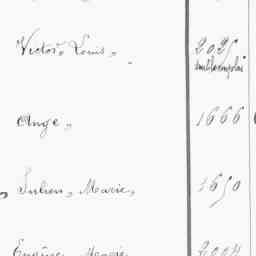 Victor Louis „ 2025
Ange „ 1666
Julien, Marie, 1650
Eugène Marie 2004